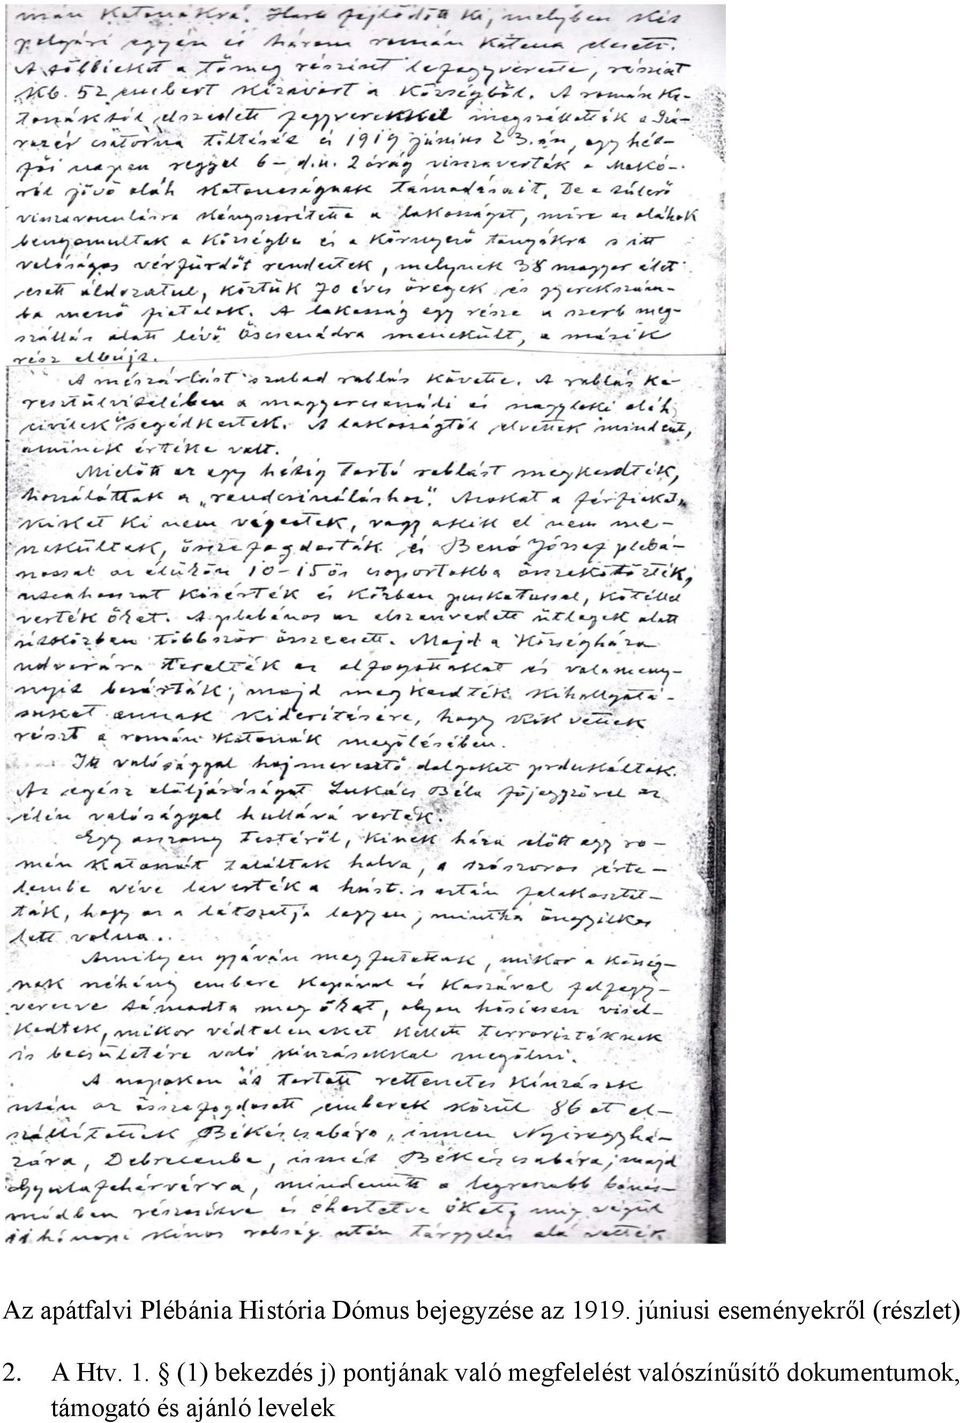 mán katonákra. Harc fejlődött ki, melyben két
polgári egyén és három román katona elesett.
A többieket a tömeg részint lefegyverezte, részint
kb. 52 embert kizavart a községből. A román ka-
tonáktól elszedett fegyverekkel megszállották a Szá-
razér csatorna töltését és 1919. június 23.-án, egy hét-
fői napon reggel 6- d.u. 2 óráig visszaverték a Makó-
ról jövő oláh katonaságnak támadásait. De a túlerő
visszavonulásra kényszerítette a lakosságot, mire az oláhok
benyomultak a községbe és a környező tanyákra s itt
valóságos vérfürdőt rendeztek, melynek 38 magyar élet
esett áldozatul, köztük 70 éves öregek és gyerekszám-
ba menő fiatalok. A lakosság egy része a szerb meg-
szállás alatt lévő Őscsanádra menekült, a másik
rész elbújt.
A mészárlást szabad rablás követte. A rablás ke-
resztülvitelében a magyarcsanádi és nagylaki oláh
civilek segédkeztek. A lakosságtól elvettek mindent,
aminek értéke volt.
Mielőtt az egy hétig tartó rablást megkezdték,
hozzáláttak a "rendcsináláshoz". Azokat a férfiakat,
kiket ki nem végeztek, vagy akik el nem me-
nekültek, összefogdosták és Benó József plébá-
nossal az élükön 10-15ös csoportokba összekötözték,
utcahosszat kisérték és közben puskatussal, kötéllel
verték őket. A plébános az elszenvedett ütlegek alatt
útközben többször összeesett. Majd a Községháza
udvarára terelték az elfogottakat és valameny-
nyit bezárták, majd megkezdték kihallgatá-
sukat annak kiderítésére, hogy kik vettek
részt a román katonák megölésében.
Itt valósággal hajmeresztő dolgokat produkáltak.
Az egész elöljáróságot Lukács Béla főjegyzővel az
élén valósággal hullává verték.
Egy asszony testéről, kinek háza előtt egy ro-
mán katonát találtak halva, a szószoros érte-
lembe véve leverték a húst s aztán felakasztot-
ták, hogy az a látszatja legyen, mintha öngyilkos
lett volna..
Amilyen gyáván megfutottak, mikor a község-
nek néhány embere kapával és kaszával felfegy-
verezve támadta meg őket, olyan hősiesen visel-
kedtek, mikor védteleneket kellett terroristáknak
is becsületére való kínzásokkal megölni.
A napokon át tartott rettenetes kínzások
után az összefogdosott emberek közül 86 ot el-
szállítottak Békéscsabára, innen Nyíregyhá-
zára, Debrecenbe, ismét Békéscsabára, majd
Gyulafehérvárra, mindenütt a legrosszabb bánás-
módban részesítve és éheztetve őket, míg végül
11 hónapi kínos rabság után tárgyalás alá vették
Az apátfalvi Plébánia História Dómus bejegyzése az 1919. júniusi eseményekről (részlet)
2. A Htv. 1. § (1) bekezdés j) pontjának való megfelelést valószínűsítő dokumentumok,
támogató és ajánló levelek